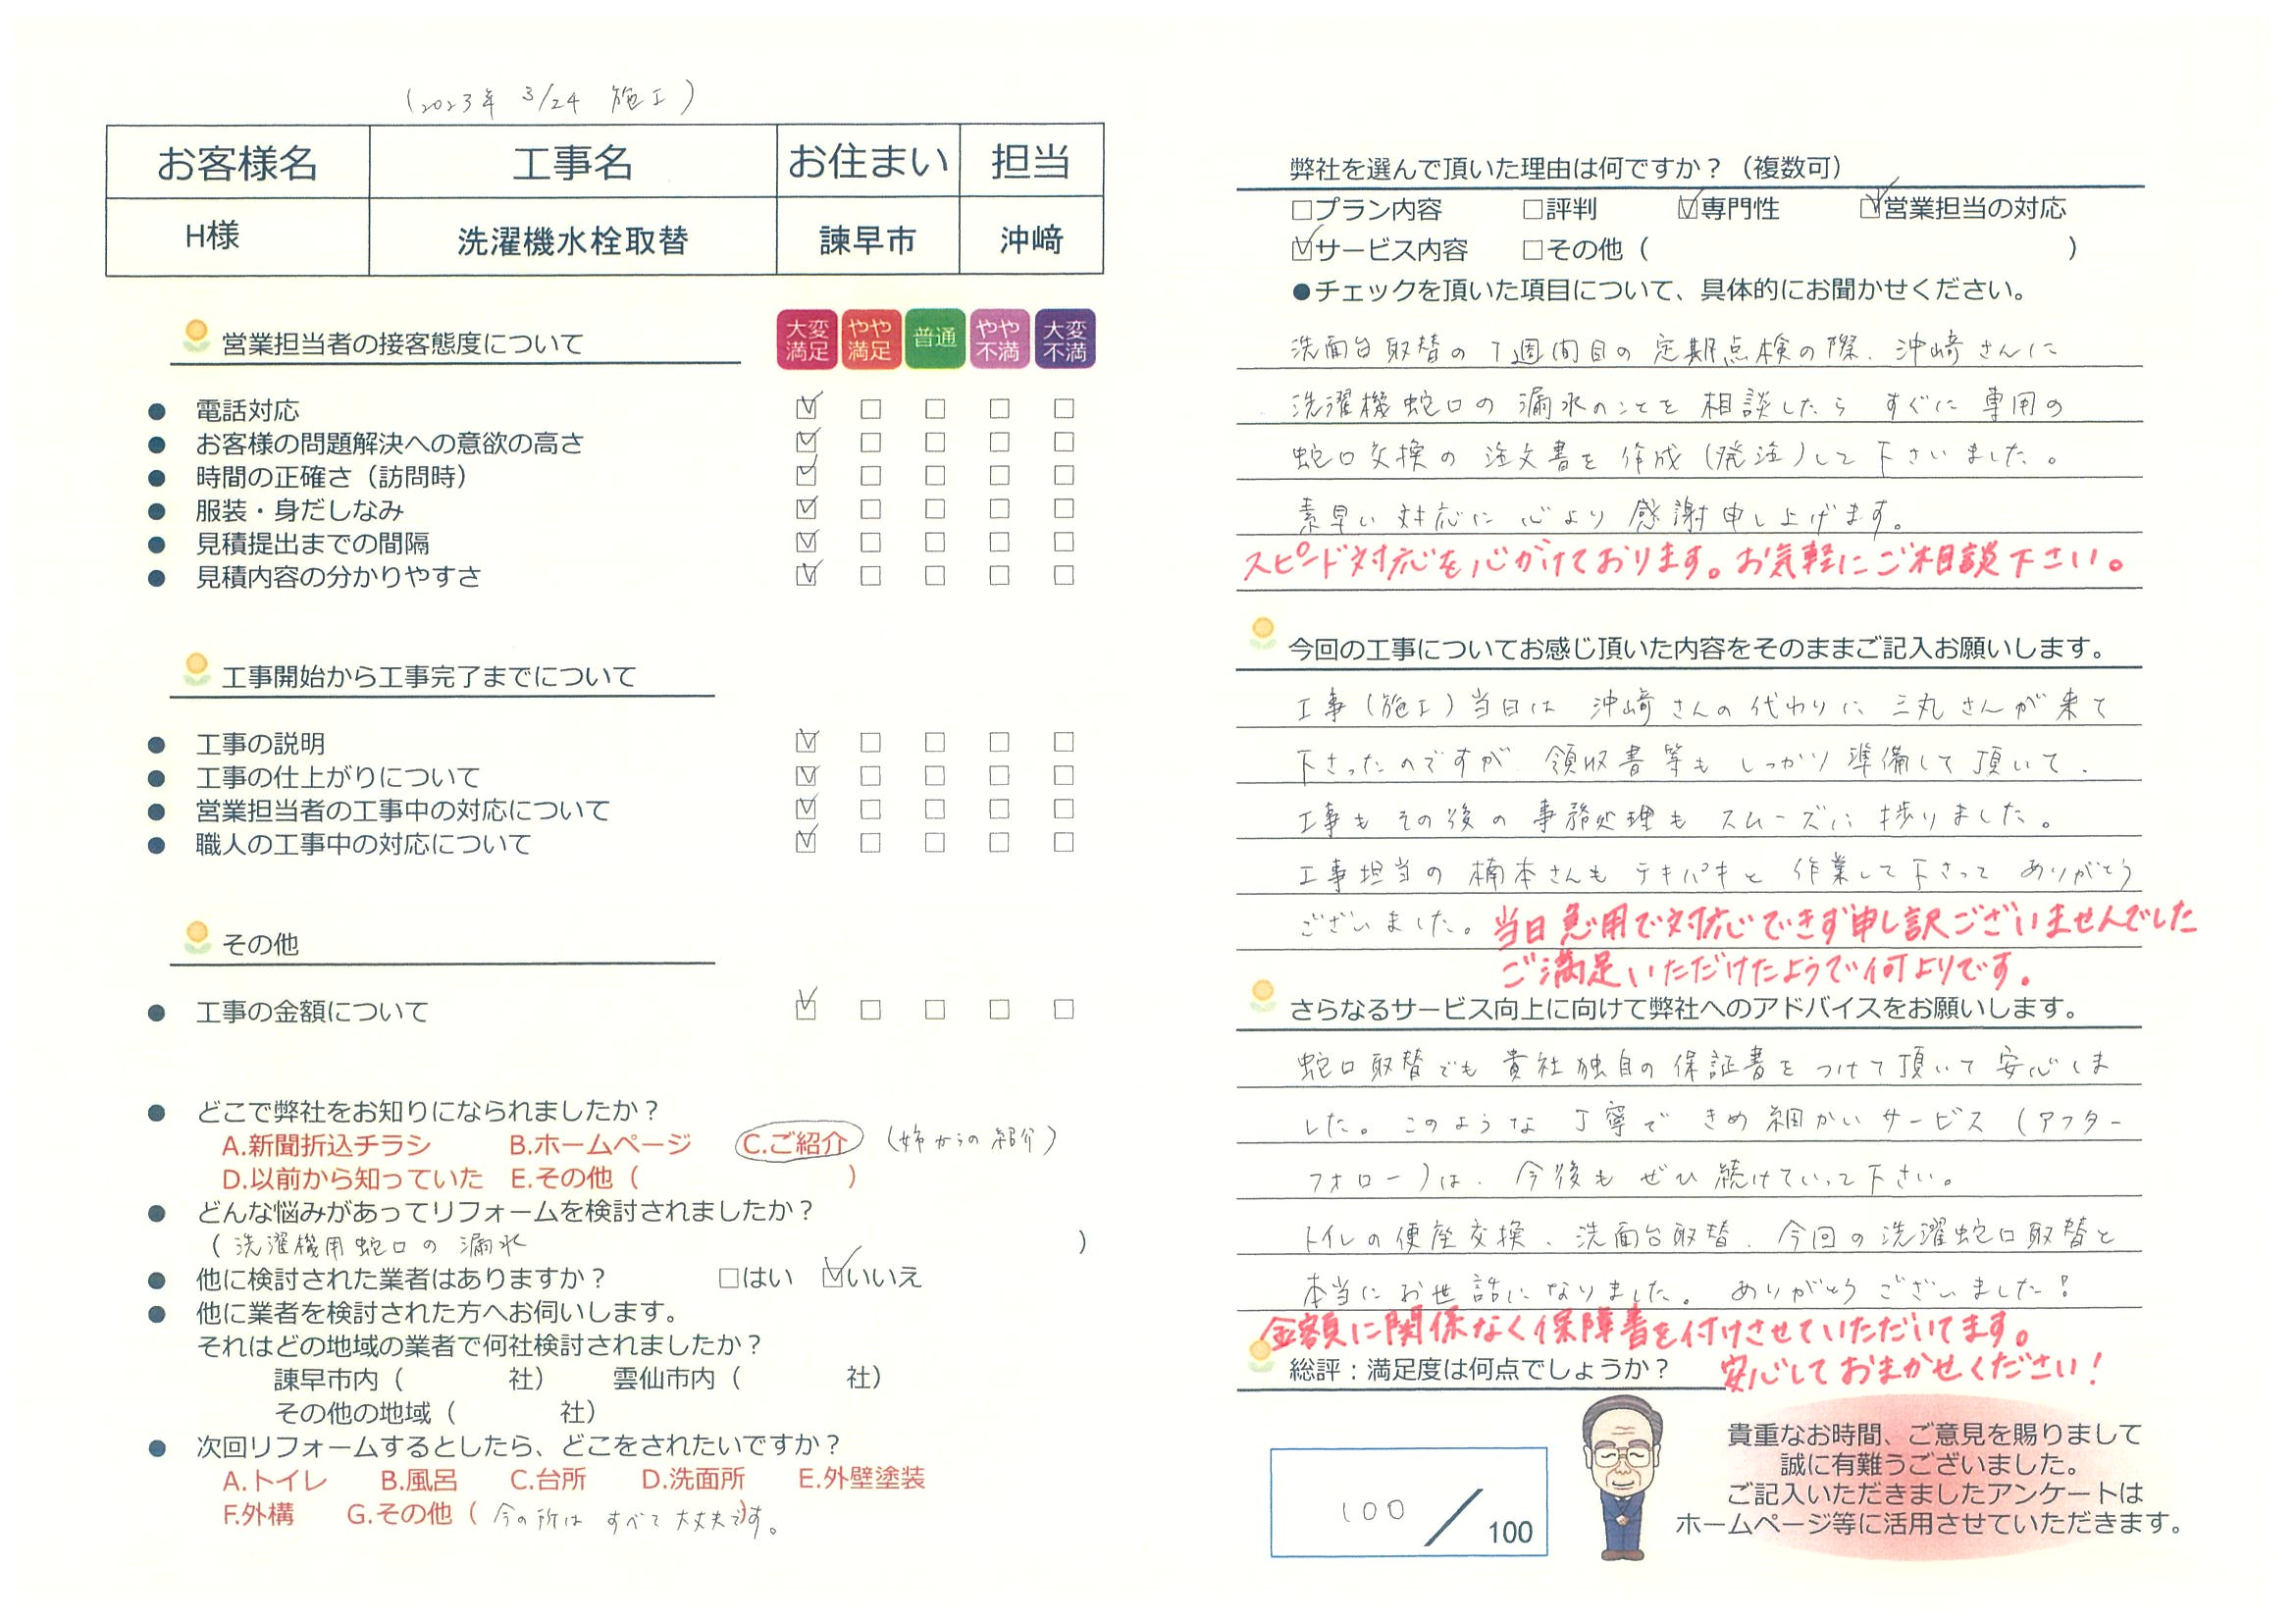 (2023年 3/24 施工)
お客様名 工事名 お住まい 担当
H様 洗濯機水栓取替 諫早市 沖﨑
営業担当者の接客態度について
大変満足 やや満足 普通 やや不満 大変不満
● 電話対応 ☑ □ □ □ □
● お客様の問題解決への意欲の高さ ☑ □ □ □ □
● 時間の正確さ（訪問時） ☑ □ □ □ □
● 服装・身だしなみ ☑ □ □ □ □
● 見積提出までの間隔 ☑ □ □ □ □
● 見積内容の分かりやすさ ☑ □ □ □ □
工事開始から工事完了までについて
● 工事の説明 ☑ □ □ □ □
● 工事の仕上がりについて ☑ □ □ □ □
● 営業担当者の工事中の対応について ☑ □ □ □ □
● 職人の工事中の対応について ☑ □ □ □ □
その他
● 工事の金額について ☑ □ □ □ □
● どこで弊社をお知りになられましたか？
A.新聞折込チラシ B.ホームページ C.ご紹介 (姉からの紹介)
D.以前から知っていた E.その他（ ）
● どんな悩みがあってリフォームを検討されましたか？
（洗濯機用蛇口の漏水 ）
● 他に検討された業者はありますか？ □はい ☑いいえ
● 他に業者を検討された方へお伺いします。
それはどの地域の業者で何社検討されましたか？
諫早市内（ 社） 雲仙市内（ 社）
その他の地域（ 社）
● 次回リフォームするとしたら、どこをされたいですか？
A.トイレ B.風呂 C.台所 D.洗面所 E.外壁塗装
F.外構 G.その他（今の所は すべて大丈夫です。）
弊社を選んで頂いた理由は何ですか？（複数可）
□プラン内容 □評判 ☑専門性 ☑営業担当の対応
☑サービス内容 □その他（ ）
●チェックを頂いた項目について、具体的にお聞かせください。
洗面台取替の1週間目の定期点検の際、沖﨑さんに
洗濯機蛇口の漏水のことを相談したら すぐに専用の
蛇口交換の注文書を作成(発注)して下さいました。
素早い対応に心より感謝申し上げます。
スピード対応を心がけております。お気軽にご相談下さい。
今回の工事についてお感じ頂いた内容をそのままご記入お願いします。
工事(施工)当日は 沖﨑さんの代わりに 三丸さんが来て
下さったのですが 領収書等も しっかり準備して頂いて、
工事もその後の事務処理もスムーズに捗りました。
工事担当の楠本さんもテキパキと作業して下さって ありがとう
ございました。当日急用で対応できず申し訳ございませんでした
ご満足いただけたようで何よりです。
さらなるサービス向上に向けて弊社へのアドバイスをお願いします。
蛇口取替でも貴社独自の保証書をつけて頂いて安心しま
した。このような丁寧で きめ細かいサービス(アフター
フォロー)は、今後もぜひ続けていって下さい。
トイレの便座交換、洗面台取替、今回の洗濯蛇口取替と
本当にお世話になりました。ありがとうございました!
金額に関係なく保障書を付けさせていただいてます。
安心しておまかせください!
総評：満足度は何点でしょうか？
100／100
貴重なお時間、ご意見を賜りまして
誠に有難うございました。
ご記入いただきましたアンケートは
ホームページ等に活用させていただきます。